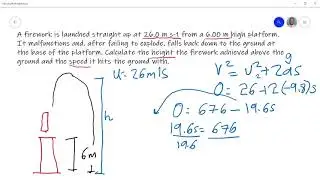 A firework is launched straight up at 26.0 m s-1 from a 6.00 m high platform.
It malfunctions and, after failing to explode, falls back down to the ground at
the base of the platform. Calculate the height the firework achieved above the
ground and the speed it hits the ground with.
u = 26 m/s
h
6m
g
v² = v² + 2as
0 = 26 + 2(-9.8)s
0 = 676 - 19.6s
19.6s = 676
19.6